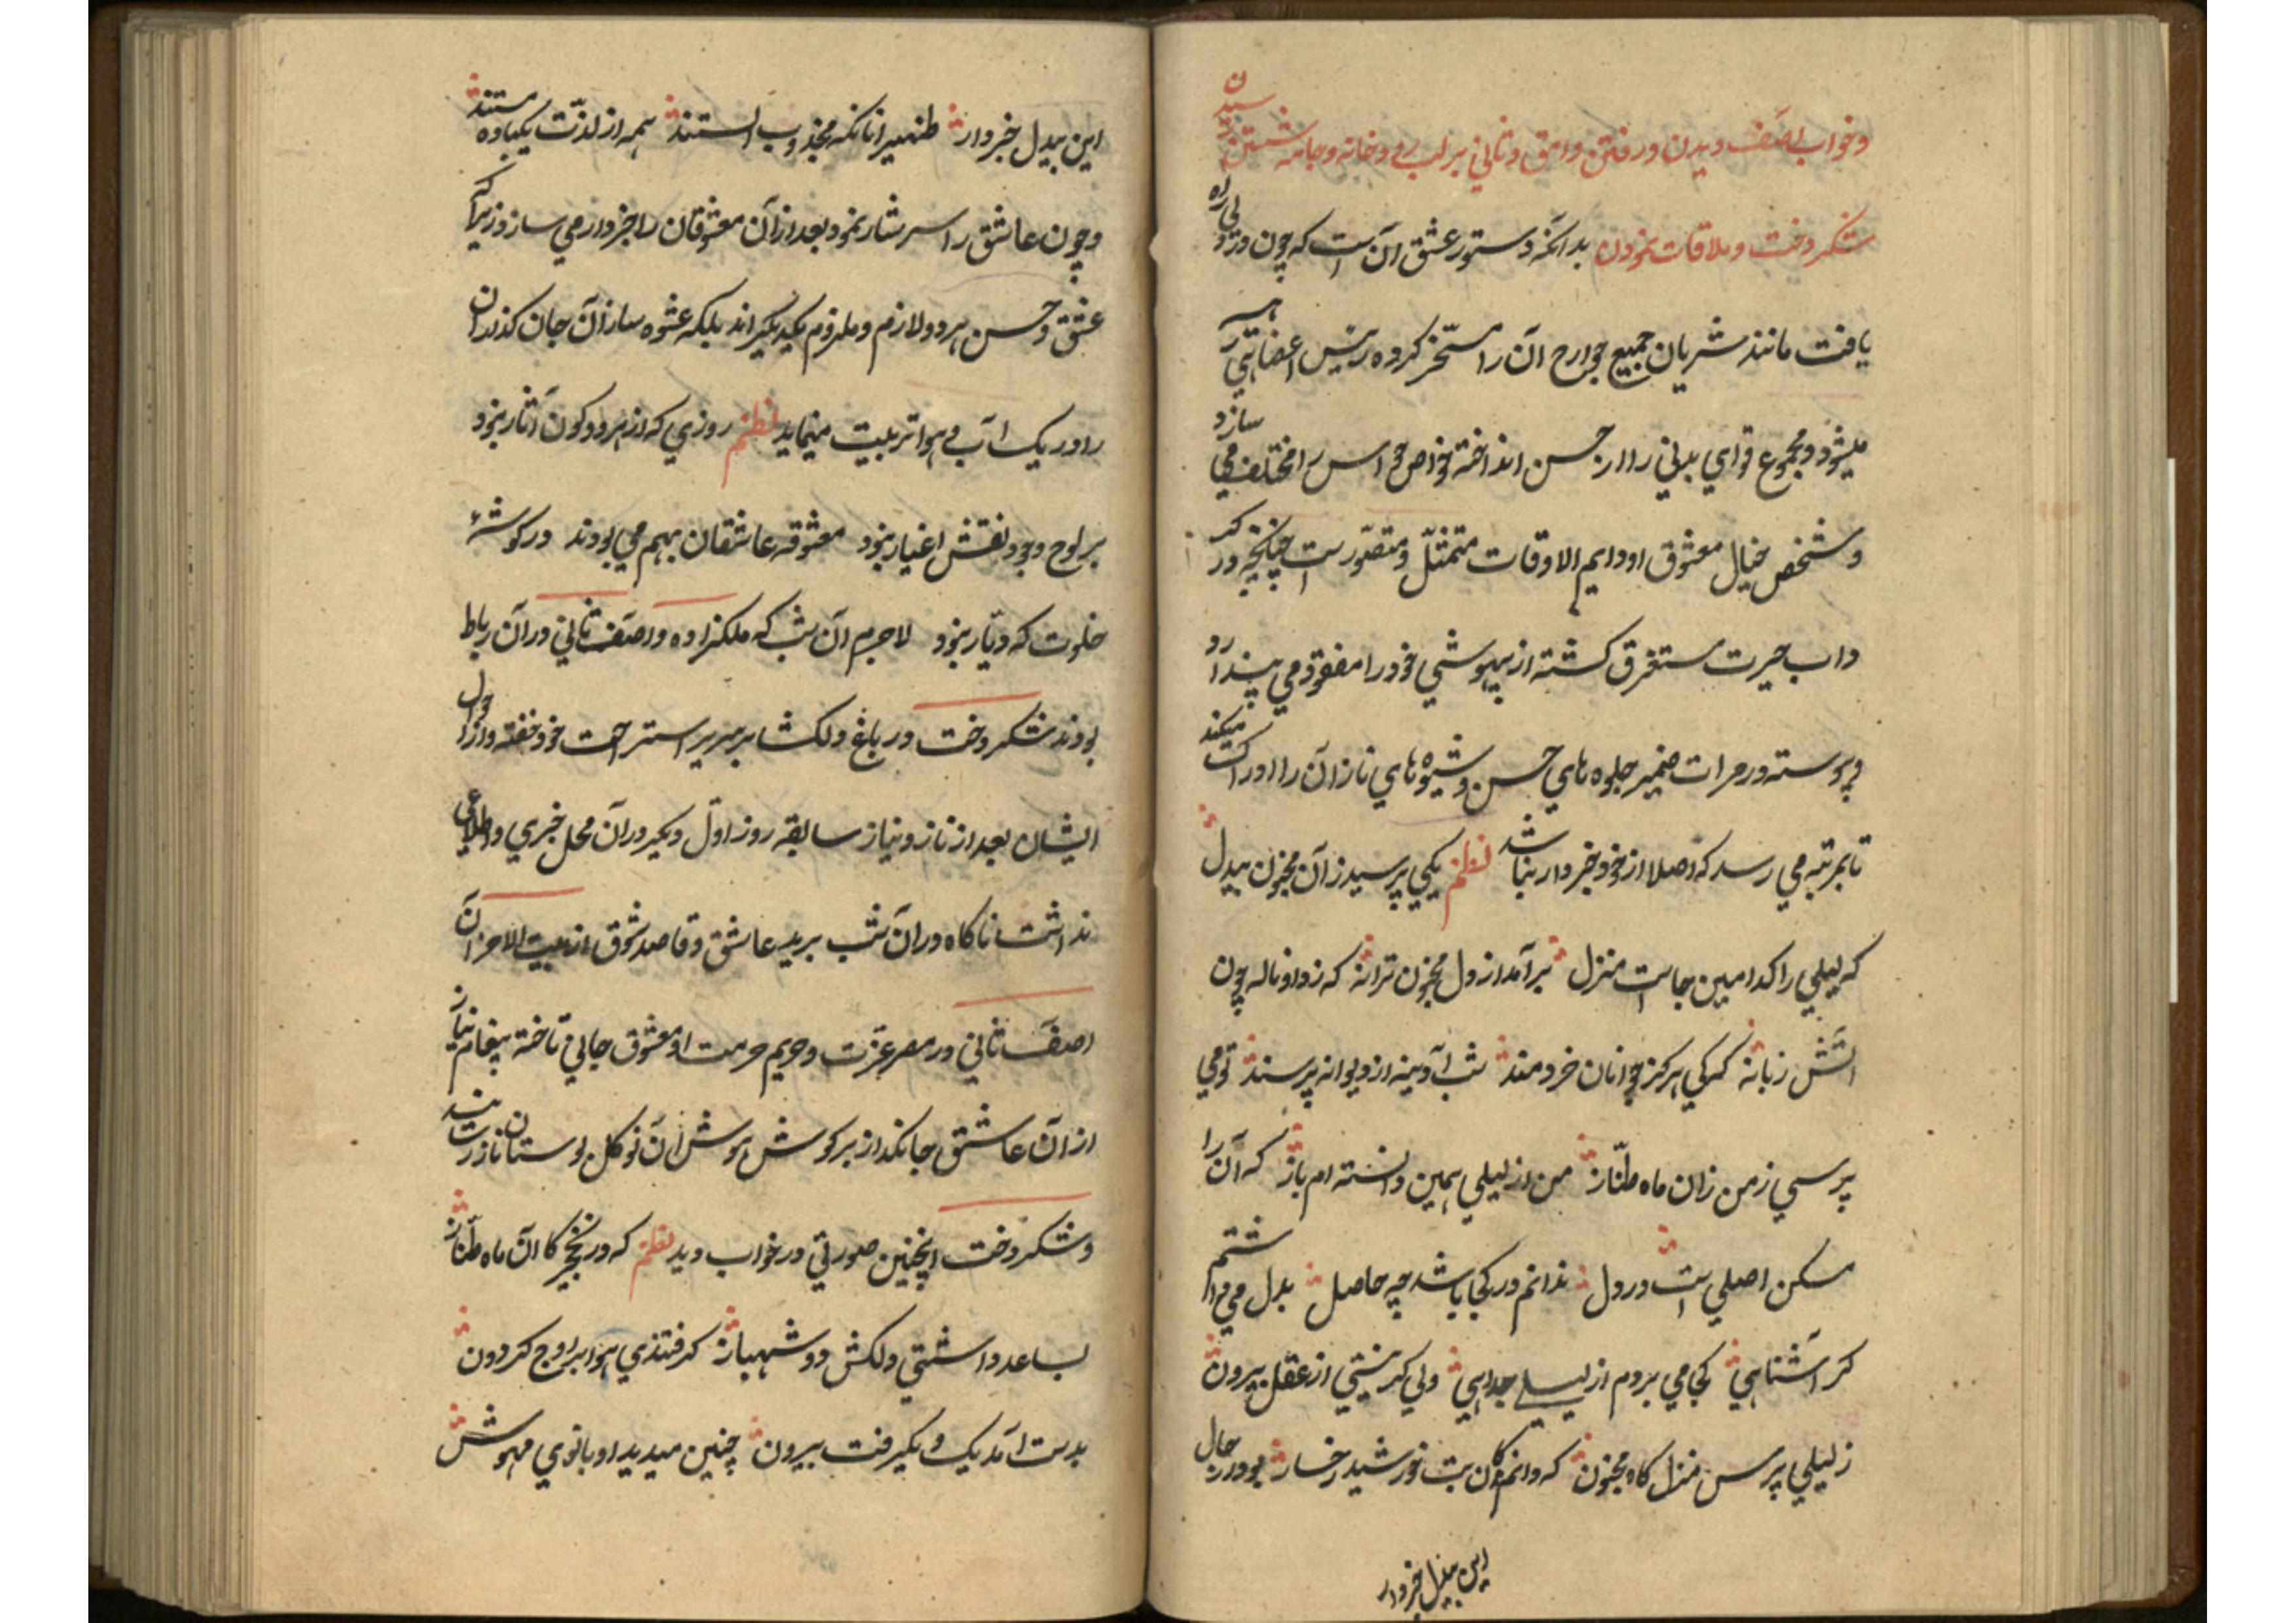 وخواب اصف دیدن ورفتن وامق وثانی برلب رودخانه وجامه شستن رسیدن
شکردخت وملاقات نمودن بدانکه دستور عشق آن است که چون در دلی راه
یافت مانند شریان جمیع جوارح آن را مسخر کرده رئیس اعضائی
میشود ومجموع قوای بدنی را از حسن انداخته خواص حواس را مختلف می سازد
وشخص خیال معشوق او دایم الاوقات متمثل ومتصور است چنانچه در
داب حیرت مستغرق کشته از بیهوشی خود را مفقود می پندارد
وپیوسته در مرات ضمیر جلوه های حسن وشیوه های ناز آن را ادراک میکند
تا بمرتبه می رسد که اصلا از خود خبردار نباشد نظم یکی پرسید زان مجنون بیدل
که لیلی را کدامین جاست منزل برآمد از دل مجنون ترانه که زد او ناله چون
آتش زبانه که کی هرکز جوانان خردمند شب آدینه از دیوانه پرسند تو می
پرسی زمن زان ماه طناز من از لیلی همین دانسته ام باز که آن را
مسکن اصلی است در دل ندانم در کجا باشد چه حاصل بدل می داشتم
کر آشنایی کجا می بردم از لیلی جدایی ولی کر نیستی از عقل بیرون
زلیلی پرس منزلکاه مجنون که دانم کان بت خورشید رخسار بود در حال
این بیدل خبردار
این بیدل خبردار ظهیر انانکه مجذوب الستند همه از لذت یکباده مستند
وچون عاشق را سرشار نمود بعد از آن معشوقان را خبردار می سازد زیرا که
عشق وحسن هر دو لازم وملزوم یکدیکر اند بلکه عشوه سازان جان کذران
را در یک آب وهوا تربیت مینماید نظم روزی که از هر دو کون آثار نبود
بر لوح وجود نقش اغیار نبود معشوقه عاشقان بهم می بودند در کوشهٔ
خلوت که دیار نبود لاجرم آن شب که ملکزاده واصف ثانی در آن رباط
بودند شکردخت در باغ دلکشا بر سریر استراحت خود خفته واز احوال
ایشان بعد از ناز ونیاز سابقه روز اول دیکر در آن محل خبری واطلاعی
نداشت ناکاه در آن شب برید عاشق وقاصد شوق از بیت الاحزان آن
اصف ثانی در مصر عزت وحریم حرمت او معشوق جانی تاخته پیغام نیاز
از آن عاشق جانکداز بر کوش هوش آن نو کل بوستان ناز رسانید
وشکردخت اینچنین صورتی در خواب دید نظم که در نخچیرکا آن ماه طناز
بساعد داشتی دلکش دو شهباز کرفتندی هوا بر اوج کردون
بدست آمد یک ودیکر رفت بیرون چنین میدید او بانوی مهوش